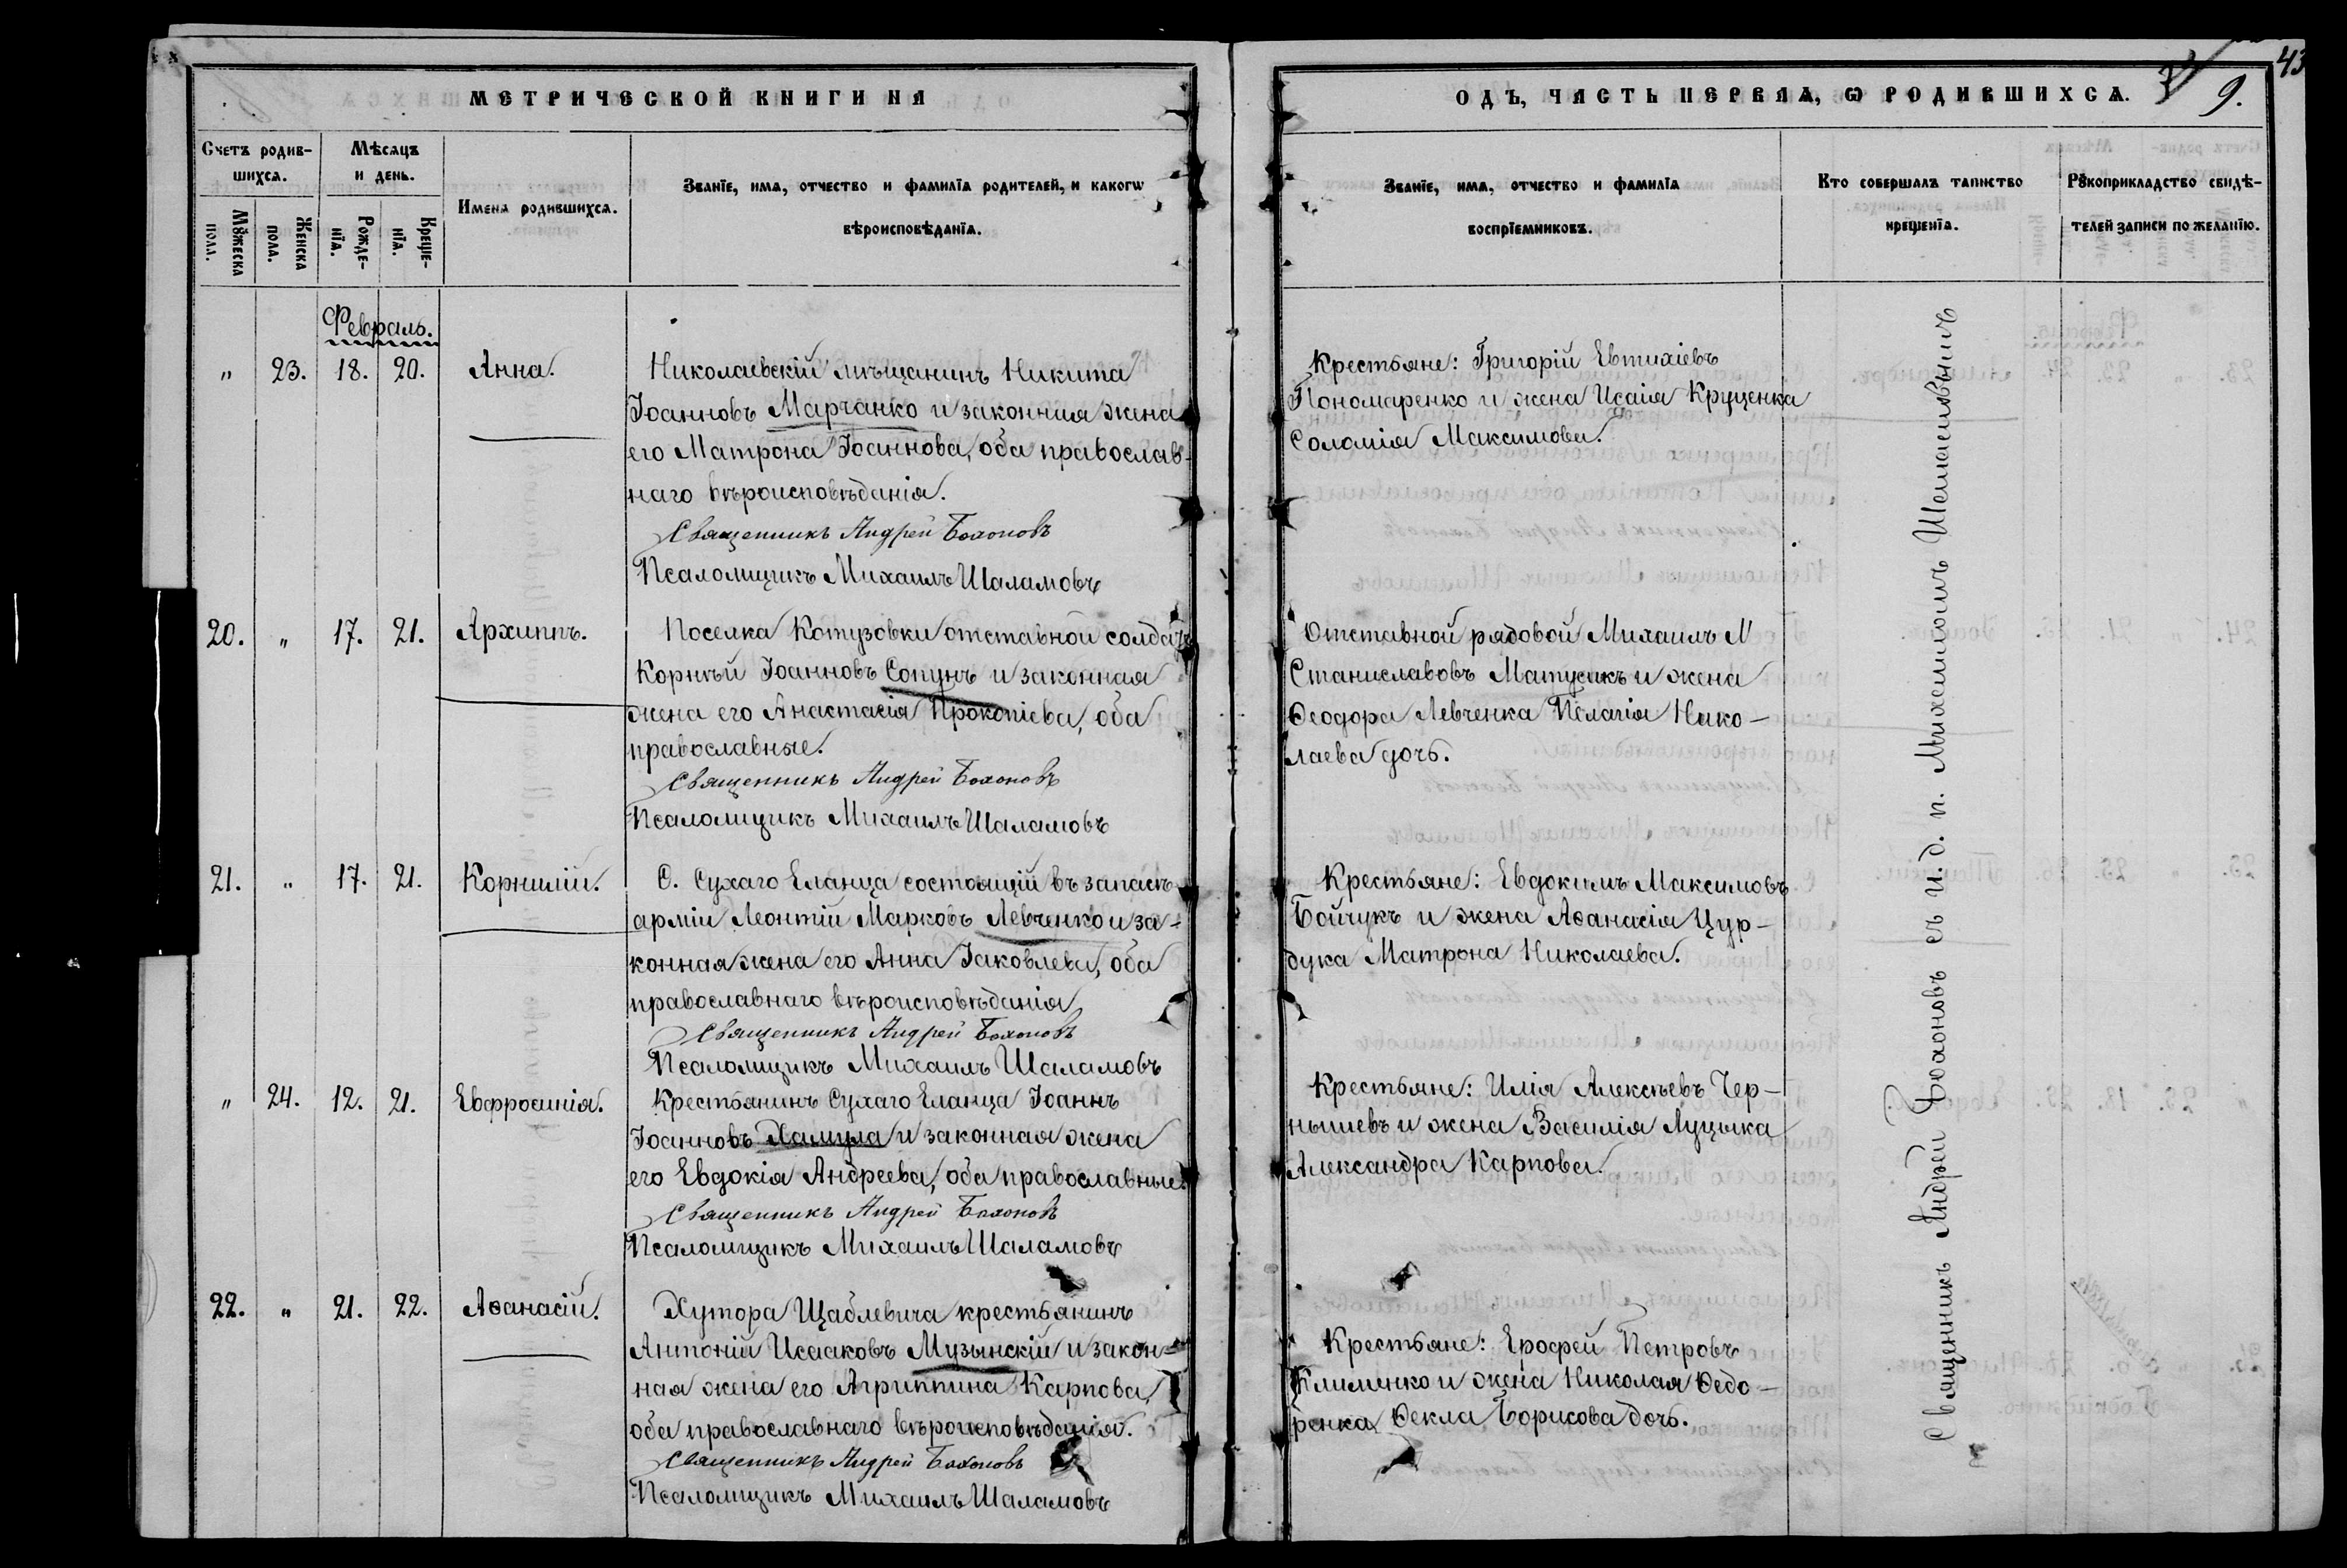 МЕТРИЧЕСКОЙ КНИГИ НА
Счетъ родив-
шихсѧ.
Мѣсѧцъ
и день.
Имена родившихсѧ.
Званїе, имѧ, отчество и фамилїѧ родителей, и какогѡ
вѣроисповѣданїѧ.
Мꙋжеска
пола.
Женска
пола.
Рожде-
нїѧ.
Креще-
нїѧ.
Февраль.
„ 23. 18. 20. Анна.
Николаевскій мѣщанинъ Никита
Іоанновъ Марчанко и законная жена
его Матрона Іоаннова, оба православ-
наго вѣроисповѣданія.
Священникъ Андрей Бохоновъ
Псаломщикъ Михаилъ Шаламовъ
20. „ 17. 21. Архиппъ.
Поселка Котузовки отставной солдатъ
Корнѣй Іоанновъ Сопунъ и законная
жена его Анастасія Прокопіева, оба
православные.
Священникъ Андрей Бохоновъ
Псаломщикъ Михаилъ Шаламовъ
21. „ 17. 21. Корнилій.
С. Сухаго Еланца состоящій въ запасѣ
арміи Леонтій Марковъ Левченко и за-
конная жена его Анна Іаковлева, оба
православнаго вѣроисповѣданія
Священникъ Андрей Бохоновъ
Псаломщикъ Михаилъ Шаламовъ
„ 24. 12. 21. Евфросинія.
Крестьянинъ Сухаго Еланца Іоаннъ
Іоанновъ Хамула и законная жена
его Евдокія Андреева, оба православные.
Священникъ Андрей Бохоновъ
Псаломщикъ Михаилъ Шаламовъ
22. „ 21. 22. Аѳанасій.
Хутора Щаблевича крестьянинъ
Антоній Исааковъ Музынскій и закон-
ная жена его Агриппина Карпова,
оба православнаго вѣроисповѣданія.
Священникъ Андрей Бохоновъ
Псаломщикъ Михаилъ Шаламовъ
43
9.
ОДЪ, ЧАСТЬ ПЕРВАѦ, Ѡ РОДИВШИХСѦ.
Званїе, имѧ, отчество и фамилїѧ
воспрїемниковъ.
Кто совершалъ таинство
крещенїѧ.
Рꙋкоприкладство свидѣ-
телей записи по желанїю.
Крестьяне: Григорій Евтихіевъ
Пономаренко и жена Исаія Круценка
Соломія Максимова.
Отставной рядовой Михаилъ М
Станиславовъ Матусикъ и жена
Ѳеодора Левченка Пелагія Нико-
лаева дочь.
Крестьяне: Евдокимъ Максимовъ
Бойчукъ и жена Аѳанасія Цур-
дука Матрона Николаева.
Крестьяне: Илія Алексѣевъ Чер-
нышевъ и жена Василія Луцыка
Александра Карпова.
Крестьяне: Ерофей Петровъ
Клименко и жена Николая Ѳедо-
ренка Ѳекла Борисова дочь.
Священникъ Андрей Бохоновъ съ и. д. п. Михаиломъ Шаламовымъ